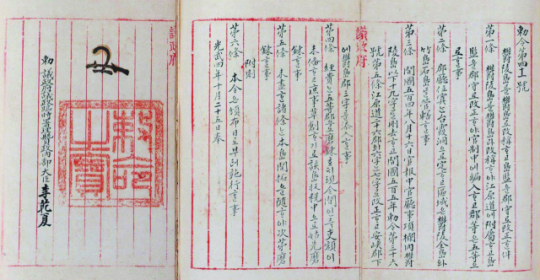 勅令第四十一號
第一條 鬱陵島를鬱島라改稱ᄒᆞ야江原道에附屬ᄒᆞ고島
監을郡守로改正ᄒᆞ야官制中에編入ᄒᆞ고郡等은五等으
로ᄒᆞᆯ事
第二條 郡廳位寘는台霞洞으로定ᄒᆞ고區域은鬱陵全島와
竹島石島를管轄ᄒᆞᆯ事
第三條 開國五百四年八月十六日官報中官廳事項欄內鬱
陵島以下十九字를刪去ᄒᆞ고開國五百五年勅令第三十六
號第五條江原道二十六郡의六字는七字로改正ᄒᆞ고安峽郡下
에鬱島郡三字를添入ᄒᆞᆯ事
第四條 經費는五等郡으로磨鍊호ᄃᆡ現今間인즉吏額이
未備ᄒᆞ고庶事草創ᄒᆞ기로該島收稅中으로姑先磨
鍊ᄒᆞᆯ事
第五條 未盡ᄒᆞᆫ諸條는本島開拓을隨ᄒᆞ야次第磨
鍊ᄒᆞᆯ事
附則
第六條 本令은頒布日로부터施行ᄒᆞᆯ事
光武四年十月二十五日奉
勅 議政府議政臨時署理贊政內部大臣 李乾夏
勅命之寶
議政府
議政府